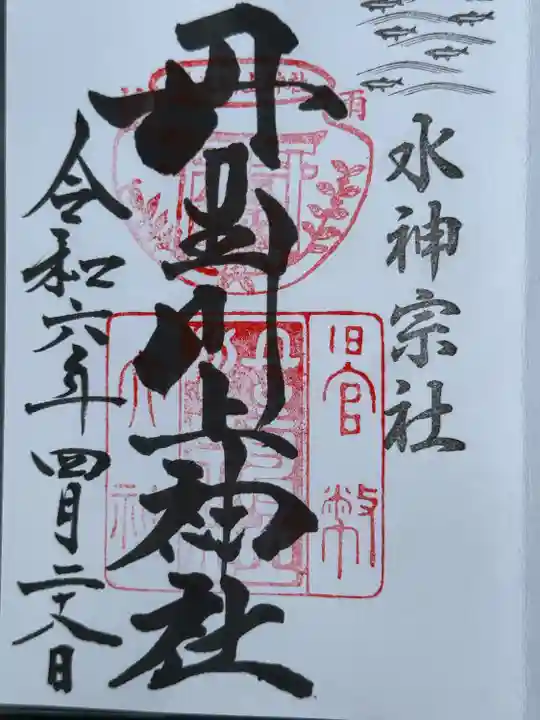 水神宗社
丹生川上神社
令和六年四月二十八日
旧官幣
大社